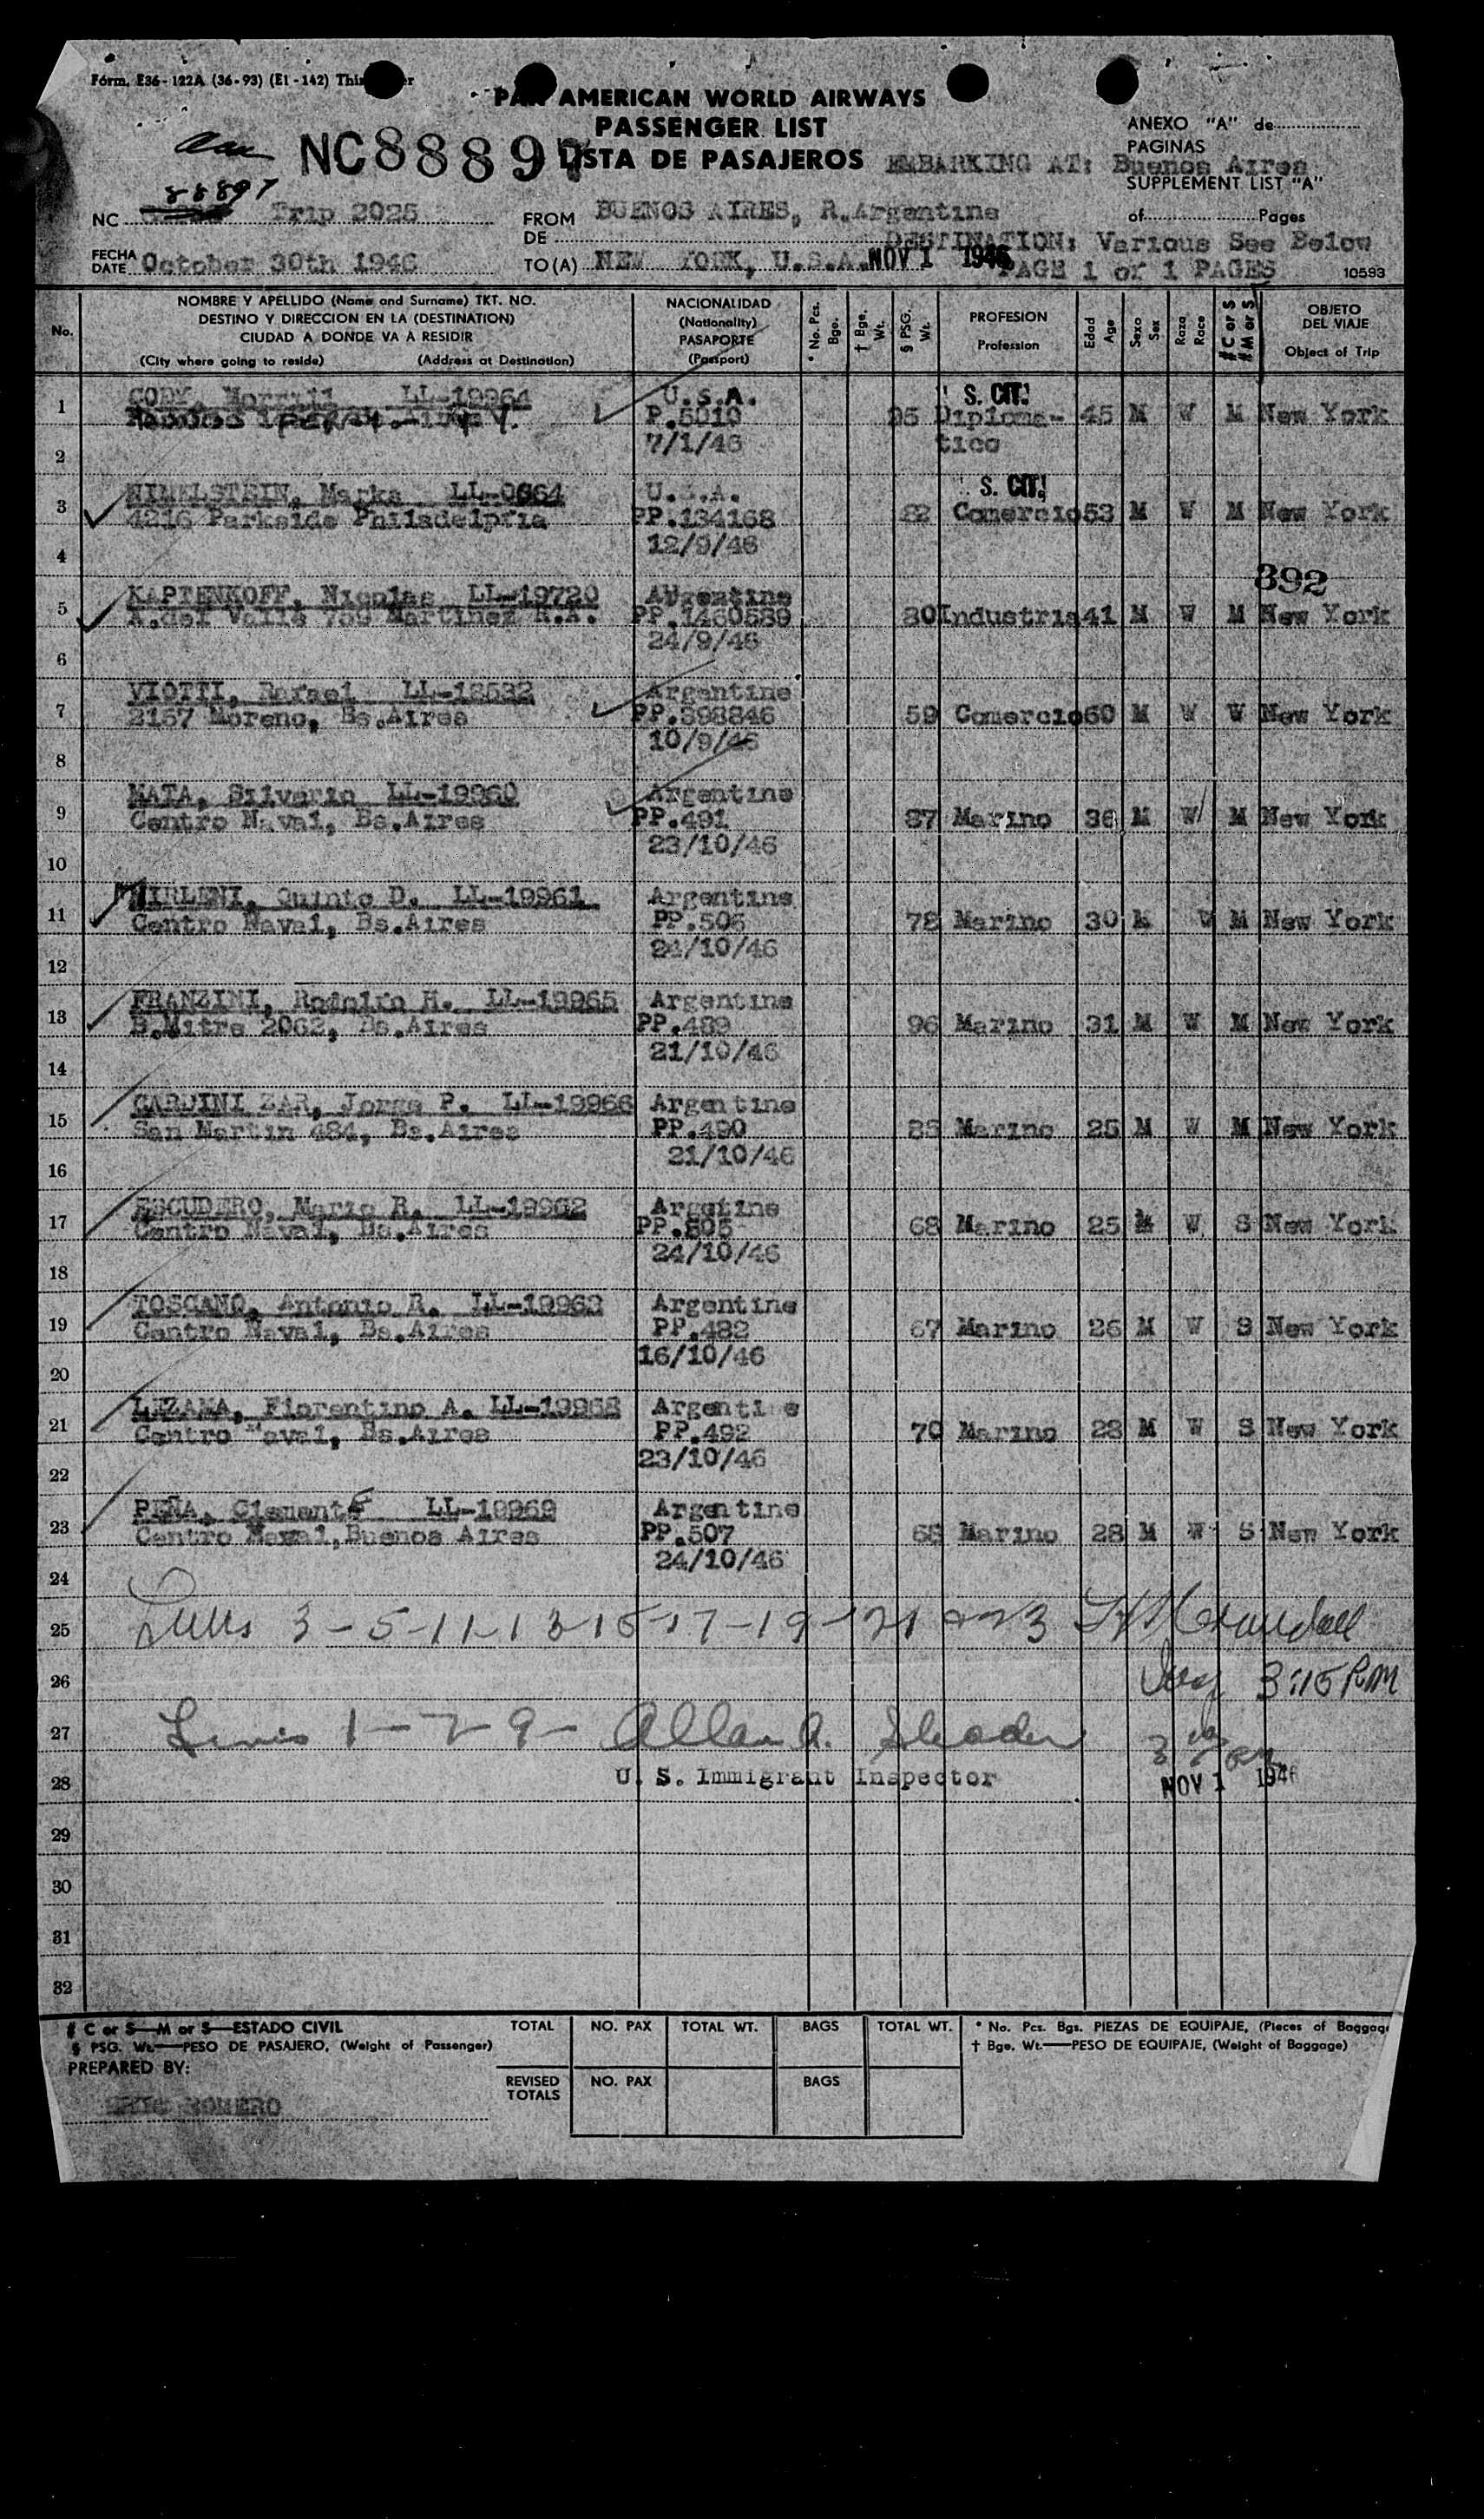 Form. E36-122A (36-93) (E1-142)
PAN AMERICAN WORLD AIRWAYS
PASSENGER LIST
LISTA DE PASAJEROS
NC88897
ANEXO "A" de
PAGINAS
SUPPLEMENT LIST "A"
of Pages
EMBARKING AT: Buenos Aires
88897
NC Trip 2025
FROM DE BUENOS AIRES, R.Argentina
DESTINATION: Various See Below
FECHA DATE October 30th 1946
TO (A) NEW YORK, U.S.A. NOV 1 1946
PAGE 1 of 1 PAGES
10593
No.
NOMBRE Y APELLIDO (Name and Surname) TKT. NO.
DESTINO Y DIRECCION EN LA (DESTINATION)
CIUDAD A DONDE VA A RESIDIR
(City where going to reside) (Address at Destination)
NACIONALIDAD
(Nationality)
PASAPORTE
(Passport)
* No. Pcs. Bge.
† Bge. Wt.
§ PSG. Wt.
PROFESION
Profession
Edad Age
Sexo Sex
Raza Race
# C or S
# M or S
OBJETO
DEL VIAJE
Object of Trip
CODY, Morrill LL-19964 U.S.A. S. CIT.
1 P.5010 95 Diploma- 45 M W M New York
2 7/1/46 tico
HIMELSTEIN, Marks LL-0664 U.S.A. S. CIT.
3 4216 Parkside Philadelpfia PP.134168 82 Comercio 53 M W M New York
4 12/9/46
892
KAPTENKOFF, Nicolas LL-19720 Argentine
5 A.del Valle 759 Martinez R.A. PP.1460589 80 Industria 41 M W M New York
6 24/9/46
VIOTTI, Rafael LL-18532 Argentine
7 2157 Moreno, Bs.Aires PP.398846 59 Comercio 60 M W W New York
8 10/9/46
MATA, Silverio LL-19960 Argentine
9 Centro Naval, Bs.Aires PP.491 87 Marino 36 M W M New York
10 23/10/46
Quinto D. LL-19961 Argentine
11 Centro Naval, Bs.Aires PP.506 78 Marino 30 M W M New York
12 24/10/46
FRANZINI, Rodolfo H. LL-19965 Argentine
13 B.Mitre 2062, Bs.Aires PP.489 96 Marino 31 M W M New York
14 21/10/46
CARDINI ZAR, Jorge P. LL-19966 Argentine
15 San Martin 484, Bs.Aires PP.490 85 Marino 25 M W M New York
16 21/10/46
ESCUDERO, Mario R. LL-19962 Argetine
17 Centro Naval, Bs.Aires PP.505 68 Marino 25 M W S New York
18 24/10/46
TOSCANO, Antonio R. LL-19963 Argentine
19 Centro Naval, Bs.Aires PP.482 67 Marino 26 M W S New York
20 16/10/46
LEZAMA, Fiorentino A. LL-19968 Argenti e
21 Centro Naval, Bs.Aires PP.492 70 Marino 28 M W S New York
22 23/10/46
PEÑA, Clemente LL-19969 Argentine
23 Centro Naval, Buenos Aires PP.507 68 Marino 28 M W S New York
24 24/10/46
25 Lines 3-5-11-13-15-17-19-21 & 23
26 3:15 PM
27 Lines 1-7-9- Allan A.
28 U. S. Immigrant Inspector NOV 1 1946
29
30
31
32
# C or S—M or S—ESTADO CIVIL
§ PSG. Wt.—PESO DE PASAJERO, (Weight of Passenger)
PREPARED BY:
ERIC ROMERO
TOTAL NO. PAX TOTAL WT. BAGS TOTAL WT.
REVISED TOTALS NO. PAX BAGS
* No. Pcs. Bgs. PIEZAS DE EQUIPAJE, (Pieces of Baggage
† Bge. Wt.—PESO DE EQUIPAJE, (Weight of Baggage)